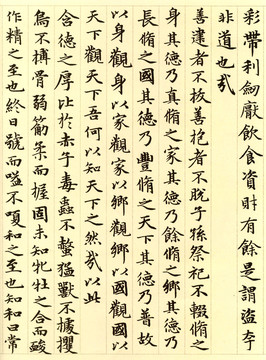 彩帶利劎厭飲食資財有餘是謂盜夸
非道也哉
善建者不拔善抱者不脫子孫祭祀不輟脩之
身其德乃真脩之家其德乃餘脩之鄉其德乃
長脩之國其德乃豐脩之天下其德乃普故
以身觀身以家觀家以鄉觀鄉以國觀國以
天下觀天下吾何以知天下之然哉以此
含德之厚比於赤子毒蟲不螫猛獸不據攫
鳥不搏骨弱筋柔而握固未知牝牡之合而酸
作精之至也終日號而嗌不嗄和之至也知和曰常